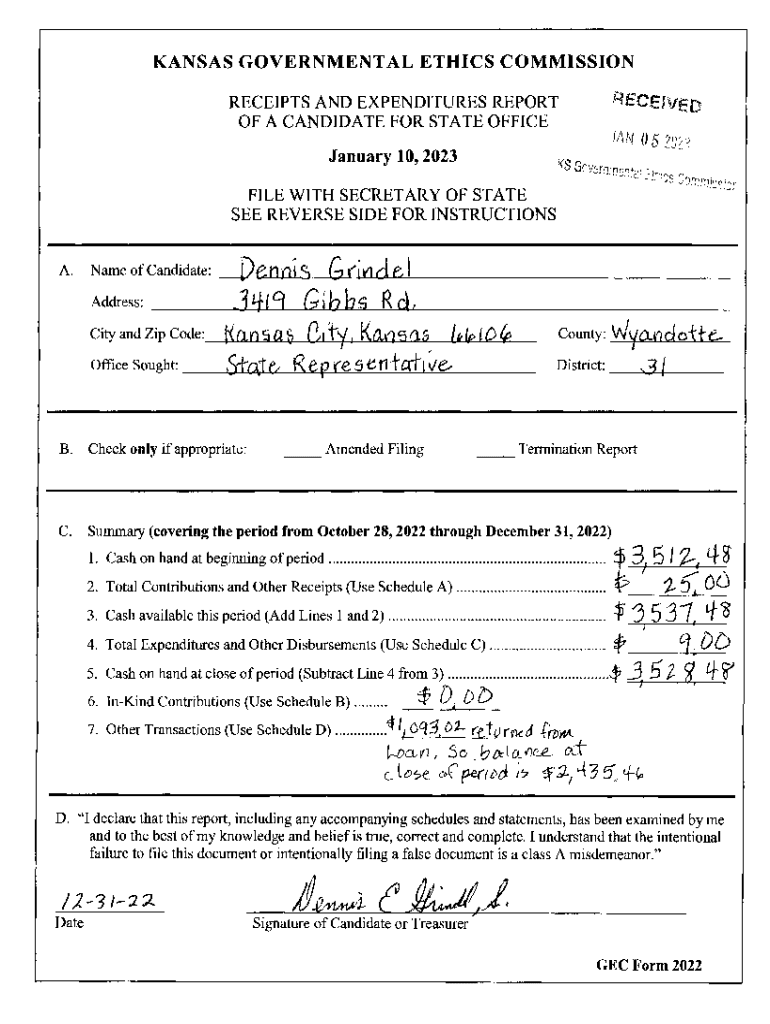 KANSAS GOVERNMENTAL ETHICS COMMISSION
RECEIPTS AND EXPENDITURES REPORT
OF A CANDIDATE FOR STATE OFFICE
RECEIVED
JAN 05
KS Governmental Ethics Commission
January 10, 2023
FILE WITH SECRETARY OF STATE
SEE REVERSE SIDE FOR INSTRUCTIONS
A. Name of Candidate: Dennis Grindel
Address: 3419 Gibbs Rd.
City and Zip Code: Kansas City, Kansas 66106 County: Wyandotte
Office Sought: State Representative District: 31
B. Check only if appropriate: _____ Amended Filing _____ Termination Report
C. Summary (covering the period from October 28, 2022 through December 31, 2022)
1. Cash on hand at beginning of period ........ $3,512.48
2. Total Contributions and Other Receipts (Use Schedule A) ........ $ 25.00
3. Cash available this period (Add Lines 1 and 2) ........ $3537.48
4. Total Expenditures and Other Disbursements (Use Schedule C) ........ $ 9.00
5. Cash on hand at close of period (Subtract Line 4 from 3) ........ $ 3,528.48
6. In-Kind Contributions (Use Schedule B) ........ $0.00
7. Other Transactions (Use Schedule D) ........ $1,093.02 returned from
Loan, So balance at
close of period is $2,435.46
D. “I declare that this report, including any accompanying schedules and statements, has been examined by me
and to the best of my knowledge and belief is true, correct and complete. I understand that the intentional
failure to file this document or intentionally filing a false document is a class A misdemeanor.”
12-31-22 Dennis E Grindel, S.
Date Signature of Candidate or Treasurer
GEC Form 2022